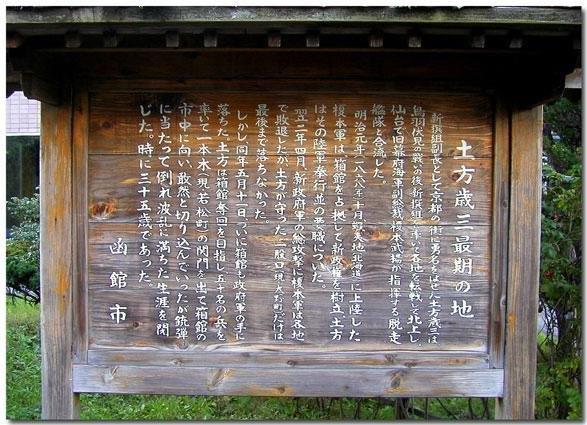 土方歳三最期の地
新撰組副長として京都の街に勇名をはせた土方歳三は
鳥羽伏見の戦いの後、新撰組を率い各地を転戦して北上し
仙台で旧幕府海軍副総裁榎本武揚が指揮する脱走
艦隊と合流した。
明治元年(一八六八年)十月蝦夷地(北海道)に上陸した
榎本軍は箱館を占拠して新政権を樹立、土方
はその陸軍奉行並の要職についた。
翌二年四月、新政府軍の総攻撃に榎本軍は各地
で敗退したが、土方が守った二股口(現大野町)だけは
最後まで落ちなかった。
しかし同年五月十一日、ついに箱館も政府軍の手に
落ちた。土方は箱館奪回を目指し五十名の兵を
率いて一本木(現若松町)の関門を出て箱館の
市中に向い、敢然と切り込んでいったが銃弾
に当たって倒れ波乱に満ちた生涯を閉
じた。時に三十五歳であった。
函館市